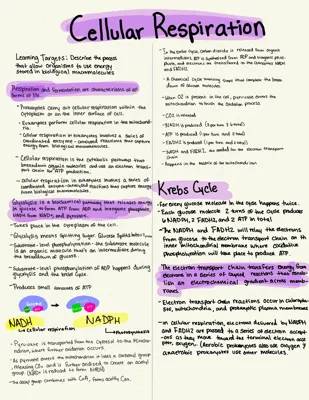 Cellular Respiration
Learning Targets: Describe the process
that allow organisms to use energy
stored in biological macromolecules
Respiration and fermentation are characteristics of all
forms of life.
• Prokaryotes carry out cellular respiration within the
cytoplasm or on the inner surface of cell.
• Eukaryotes perform cellular respiration in the mitochond-
ria
• Cellular respiration in eukaryotes involves a series of
coordinated enzyme-catalyzed reactions that capture
energy from biological macromolecules.
• Cellular respiration is the catabolic pathway that
breakdown organic molecules and use an electron transport
chain for ATP production.
- Cellular respiration in eukaryotes involves a series of
coordinated enzyme-catalyzed reactions that capture energy
from biological macromolecules.
Glycolysis is a biochemical pathway that releases energy
in glucose to form ATP from ADP and inorganic phosphate,
NADH from NAD+, and pyruvate.
Takes place in the cytoplasm of the cell.
- Glycolysis means splitting sugar
- Substrate-level phosphorylation - the substrate molecule
is an organic molecule that's an intermediate during
the breakdown of glucose.
- Substrate-level phosphorylation of ADP happens during
glycolysis and the Krebs Cycle
- Produces small amounts of ATP
NADH
NADPH
↳ cellular respiration
↳ photosynthesis
- Pyruvate is transported from the cytosol to the mitochon-
drion, where further oxidation occurs.
- The acetyl group combines with CoA, forms acetyl CoA.
• In the Krebs cycle, carbon dioxide is released from organic
intermediates, ATP is synthesized from ADP and inorganic phos-
phate, and electrons are transferred to the coenzymes NADH
and FADH2.
- When O2 is present in the cell, pyruvate enters the
mitochondrion to finish the oxidation process.
- CO2 is released
- Happens in the matrix of the mitochondrion
Krebs Cycle
- For every glucose molecule the cycle happens twice.
- Each glucose molecule 2 turns of the cycle produces
6 NADH, 2 FADH2, and 2 ATP in total.
- The NADH and FADH2 will relay the electrons
from glucose to the electron transport chain on the
inner mitochondrial membrane where oxidative
phosphorylation will take place to produce ATP.
The electron transport chain transfers energy from
electrons in a series of coupled reactions that estab-
lish an electrochemical gradient across mem-
branes.
- Electron transport chain reactions occur in chloropla-
sts, mitochondria, and prokaryotic plasma membranes
- In cellular respiration, electrons delivered by NADH
and FADH2 are passed to a series of electron accept-
ors as they move toward the terminal electron acce-
ptor, oxygen. (Aerobic prokaryotes also use oxygen &
anaerobic prokaryotes use other molecules.